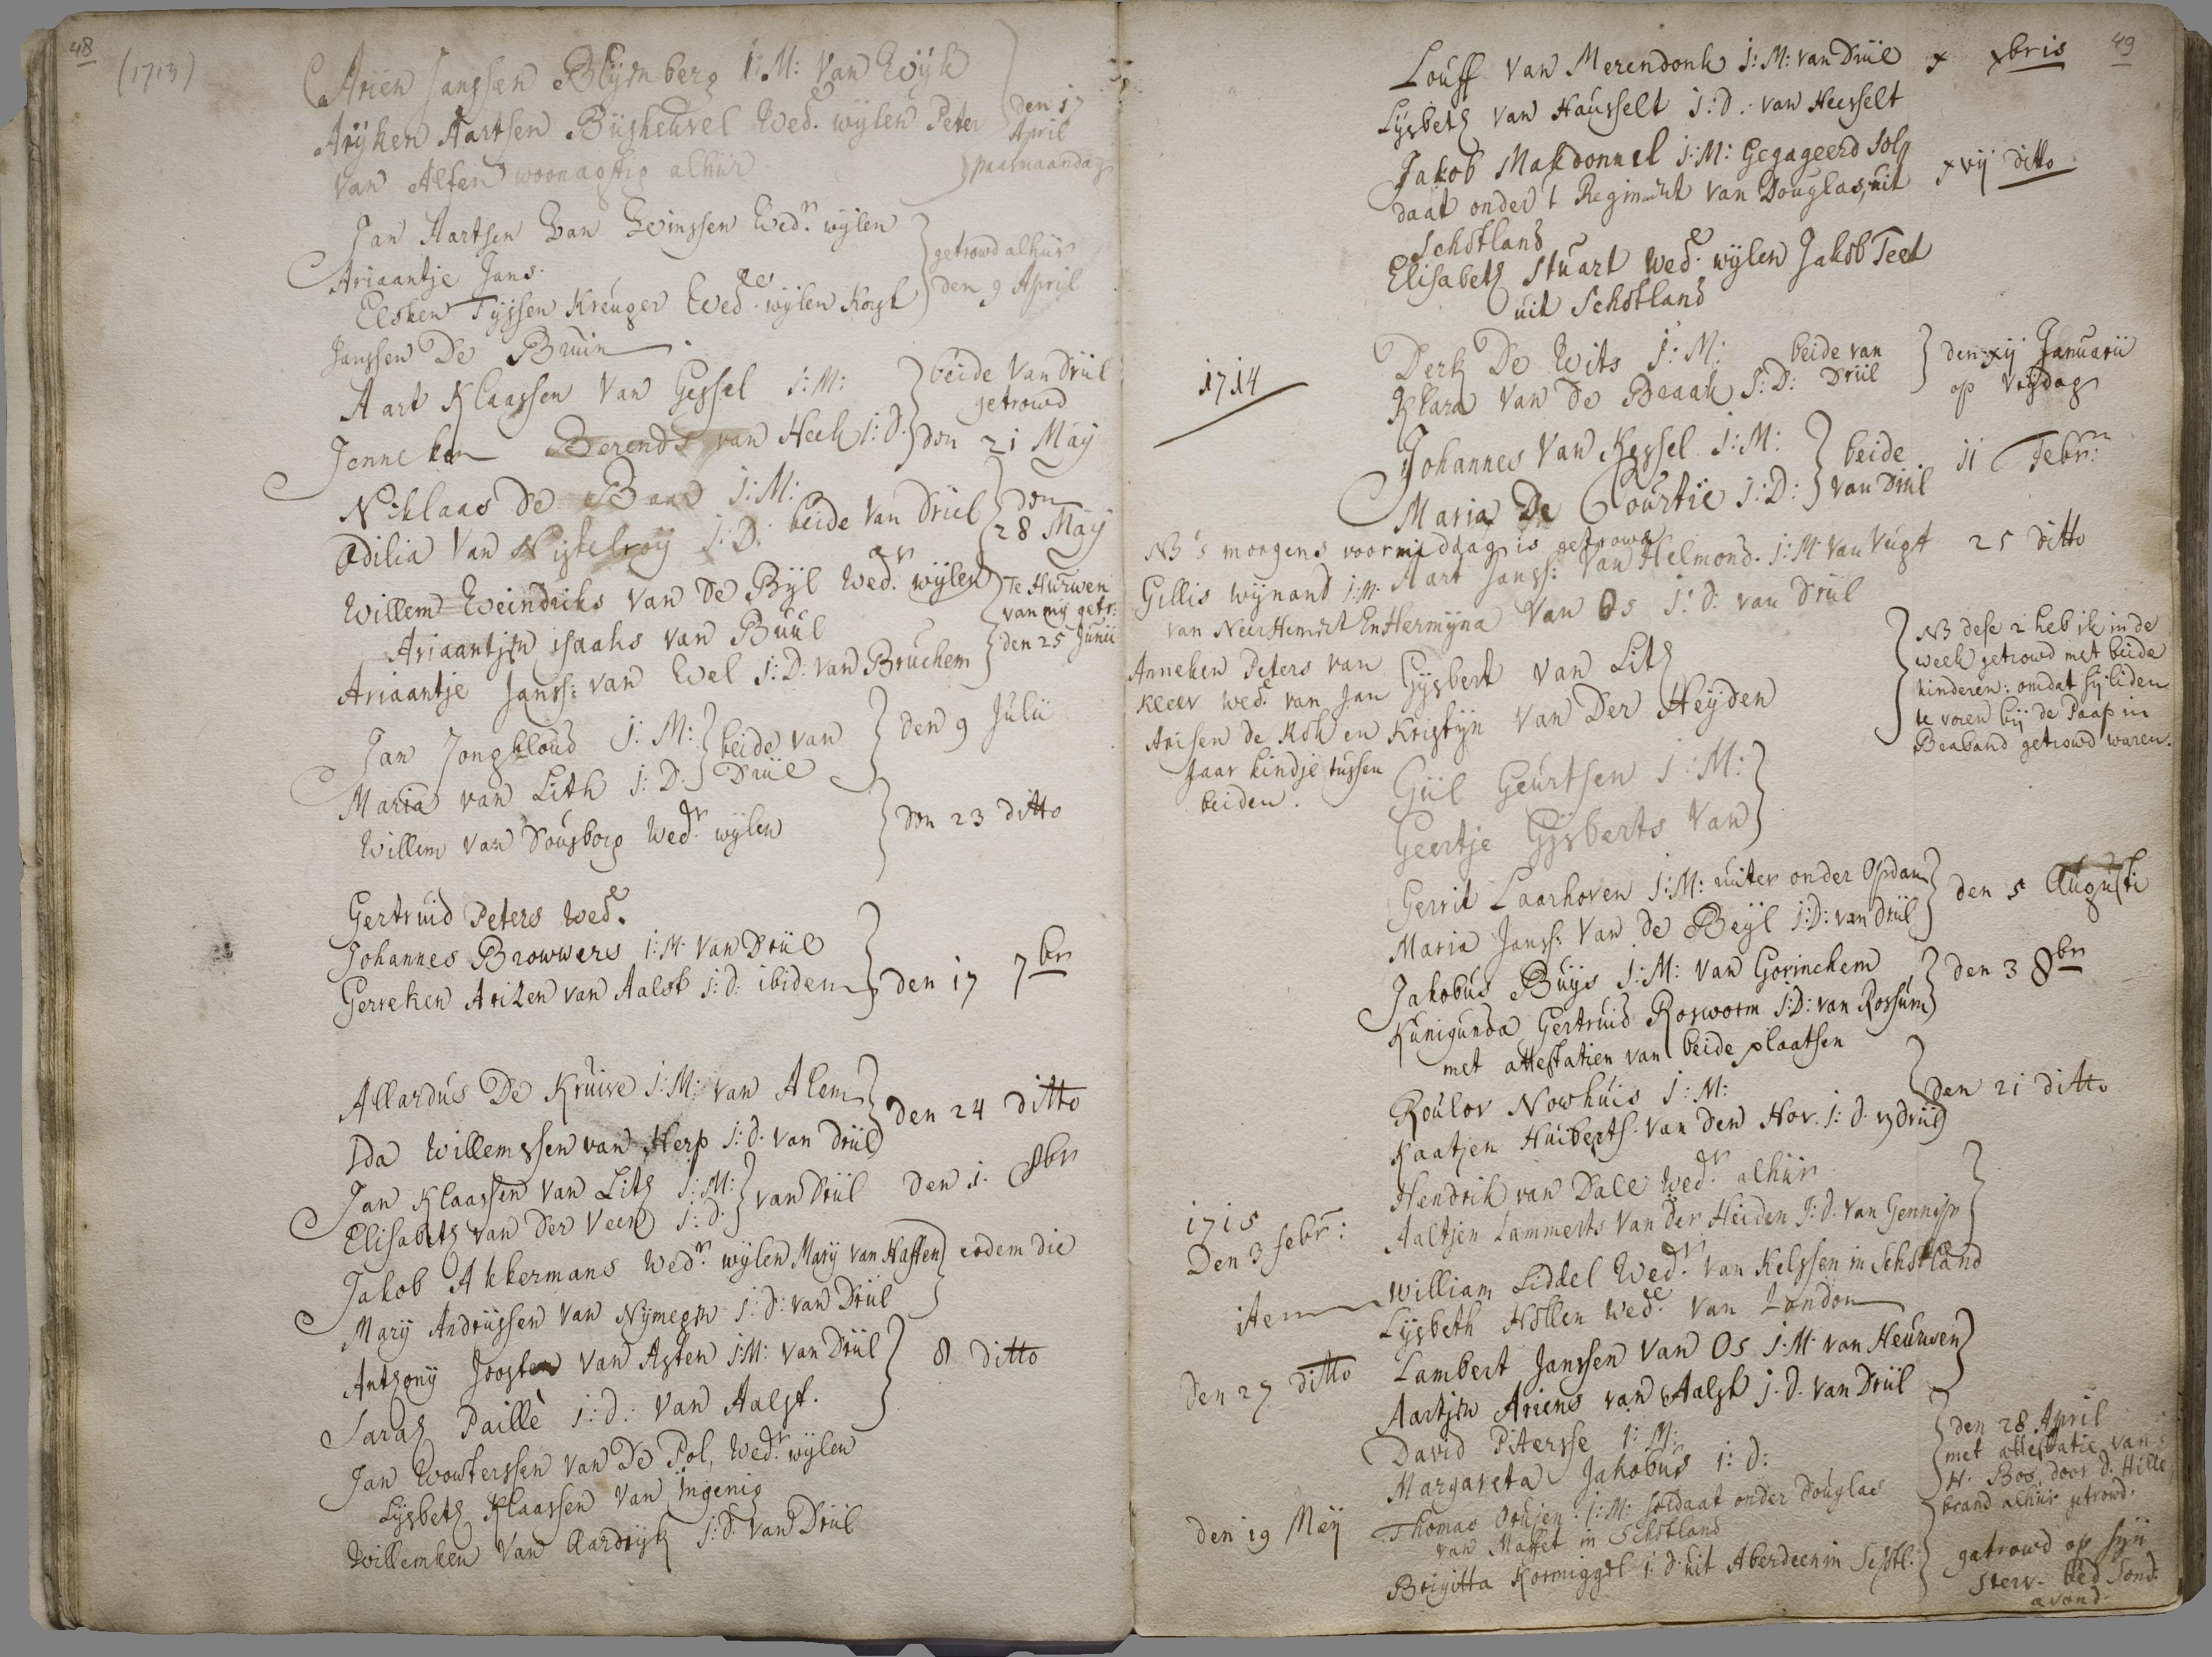 48
(1713)
Arien Janssen Blijenberg J: M: van Wijk
Arijken Aartsen Büskeuvel Wede. wylen Peter
van Alfen woonagtig alhier
den 17
April
paasmaandag
Jan Aartsen van Wedr. wylen
Ariaantje Jans.
Elsken Tijssen Kreuger Wede. wylen
Janssen De Bruin.
getrowd alhier
den 9 April
Aart Klaassen van Gessel J: M:
Jenneken Berends van Heek J: D.
beide van Driel
getrowd
den 21 May
Niklaas De Baad J: M:
Odilia van Nistelroij J: D: beide van Driel
den
28 May
Willem Weindriks van De Bijl Wedr. wylen
Ariaantjen isaaks van Buül
Ariaantje Janss: van Wel J: D: van Bruchem
Te Hurwen
van mij getr:
den 25 Junii
Jan Jongbloud J: M:
Maria van Lith J: D:
beide van
Driel
den 9 Julii
Willem van Dousborg Wedr. wylen
den 23 ditto
Gertruid Peters Wede.
Johannes Browwers J: M. van Driel
Gerreken Arissen van Aalst J: d: ibidem
den 17 7br
Allardus De Kruive J: M: van Alem
Ida Willemssen van Herp J: d. van Driel
den 24 ditto
Jan Klaassen van Lith J: M:
Elisabeth van der Veen J: d:
van Driel den 1. 8br
Jakob Akkermans Wedr. wylen Marij van Haften
Marij Andriissen van Nymegen J: D: van Driel
eodem die
Anthonij Joosten van Asten J: M: van Driel
Sarah Paillè J: d: van Aalst.
8 ditto
Jan Wouterssen van De Pol, Wedr. wylen
Lijsbeth Klaassen van Ingenig
Willemken van Aardrijk J: D. van Driel
49
Louff van Merendonk J: M: van Driel x xbris
Lijsbeth van Hausselt J: D. van Heesselt
Jakob Makdonnel J: M: Gegageerd Sol
daat onder 't Regiment van Douglas, uit
Schotland
xvij ditto
Elisabeth Stuart Wede. wylen Jakob Teet
uit Schotland
1714
Derk De Wits J: M:
Klara van De Braak J: D:
beide van
Driel
den xij Januarii
op Vrijdag
Johannes van Kessel J: M:
Maria De Courtie J: D:
beide
van Driel
11 Febr:
NB 's morgens voormiddag is getrowd
Gillis Wijnand J: M.
van Neerhemert En
Anneken Peters van
Kleev Wede. van Jan
Arisen de Kok en
Jaar kindje tussen
beiden.
Aart Janss: van Helmond. J: M. van Vugt 25 ditto
Hermijna van Os J: d: van Driel
Gijsbert van Lith
Kristijn van Der Heijden
NB dese 2 heb ik in de
week getrowd met beide
kinderen: omdat sij liden
te voren bij de Paap in
Braband getrowd waren.
Giil Geurtsen J: M:
Geertje Gijsberts van
Gerrit Laarhoven J: M: ruiter onder Opdam
Maria Janss: van de Beijl J: D: van Driel
den 5 Augusti
Jakobus Buijs J: M: van Gorinchem
Kunigunda Gertruid Rosworm J: D: van Rossum
met attestatien van beide plaatsen
den 3 8br
Roulov Nowhuis J: M:
Kaatjen Huiberts. van den Hov. J: d. v. Driel
den 21 ditto
1715
Den 3 febr:
Hendrik van Dale Wedr. alhier
Aaltjen Lammerts van der Heiden J: d. van Gennip
item
William Liddel Wedr. van Kelssen in Schotland
Lijsbeth Hollen Wede. van London
Den 27 ditto
Lambert Janssen van Os J: M. van Heurwen
Aartjen Ariens van Aalst J. d. van Driel
David Pitersse J: M:
Margareta Jakobus J: d:
den 28 April
met attestatie van
H. Bos, door d. Hille
brand alhier getrowd.
den 19 Meij
Thomas J: M: soldaat onder Douglas
van Maffet in Schotland
Brigitta Kormiggel J: d. uit Aberdeen in Schotl:
getrowd op sijn
sterv-bed Sond:
avond.